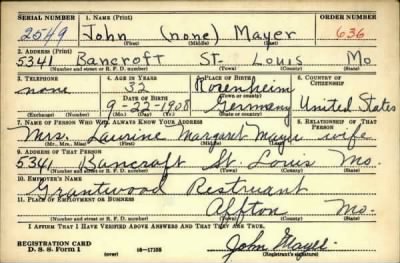 SERIAL NUMBER 1. NAME (Print) ORDER NUMBER
2549 John (none) Mayer 636
(First) (Middle) (Last)
2. ADDRESS (Print)
5341 Bancroft St. Louis Mo
(Number and street or R. F. D. number) (Town) (County) (State)
3. TELEPHONE 4. AGE IN YEARS 5. PLACE OF BIRTH 6. COUNTRY OF CITIZENSHIP
none 32 Rosenheim
DATE OF BIRTH (Town or county)
9-22-1908 Germany United States
(Exchange) (Number) (Mo.) (Day) (Yr.) (State or country)
7. NAME OF PERSON WHO WILL ALWAYS KNOW YOUR ADDRESS 8. RELATIONSHIP OF THAT PERSON
Mrs. Laurine Margaret Mayer wife
(Mr., Mrs., Miss) (First) (Middle) (Last)
9. ADDRESS OF THAT PERSON
5341 Bancroft St. Louis Mo.
(Number and street or R. F. D. number) (Town) (County) (State)
10. EMPLOYER'S NAME
Grantwood Restruant
11. PLACE OF EMPLOYMENT OR BUSINESS
Affton Mo.
(Number and street or R. F. D. number) (Town) (County) (State)
I AFFIRM THAT I HAVE VERIFIED ABOVE ANSWERS AND THAT THEY ARE TRUE.
REGISTRATION CARD
D. S. S. Form 1 16-17105 John Mayer
(Registrant's signature)